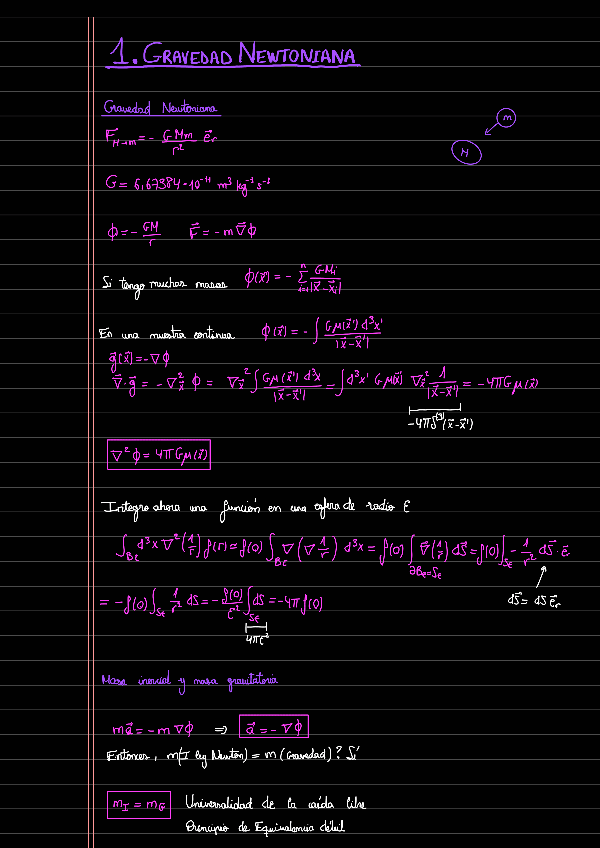 1. GRAVEDAD NEWTONIANA
Gravedad Newtoniana
m
F⃗_{M→m} = - GMm/r² e⃗_r
M
G = 6,67384·10⁻¹¹ m³ kg⁻¹ s⁻²
ϕ = - GM/r    F⃗ = -m∇⃗ϕ
Si tengo muchas masas   ϕ(x⃗) = - ∑_{i=1}^{n} GM_i/|x⃗-x⃗_i|
En una muestra continua   ϕ(x⃗) = - ∫ Gμ(x⃗') d³x'/|x⃗-x⃗'|
g⃗(x⃗) = -∇ϕ
∇⃗·g⃗ = -∇²_x⃗ ϕ = ∇_x⃗² ∫ Gμ(x⃗') d³x/|x⃗-x⃗'| = ∫ d³x' Gμ(x⃗) ∇_x⃗² 1/|x⃗-x⃗'| = -4πGμ(x⃗)
-4πδ⁽³⁾(x⃗-x⃗')
∇²ϕ = 4πGμ(x⃗)
Integro ahora una función en una esfera de radio ε
∫_{Bε} d³x ∇²(1/r) f(r) ≈ f(0) ∫_{Bε} ∇(∇ 1/r) d³x = f(0) ∫_{∂Bε=Sε} ∇⃗(1/r) dS⃗ = f(0) ∫_{Sε} - 1/r² dS⃗·e⃗_r
dS⃗ = dS e⃗_r
= -f(0) ∫_{Sε} 1/r² dS = - f(0)/ε² ∫_{Sε} dS = -4π f(0)
4πε²
Masa inercial y masa gravitatoria
ma⃗ = -m∇ϕ   ⇒   a⃗ = -∇ϕ
Entonces, m(I ley Newton) = m (Gravedad)? Sí
m_I = m_G   Universalidad de la caída libre
Principio de Equivalencia débil